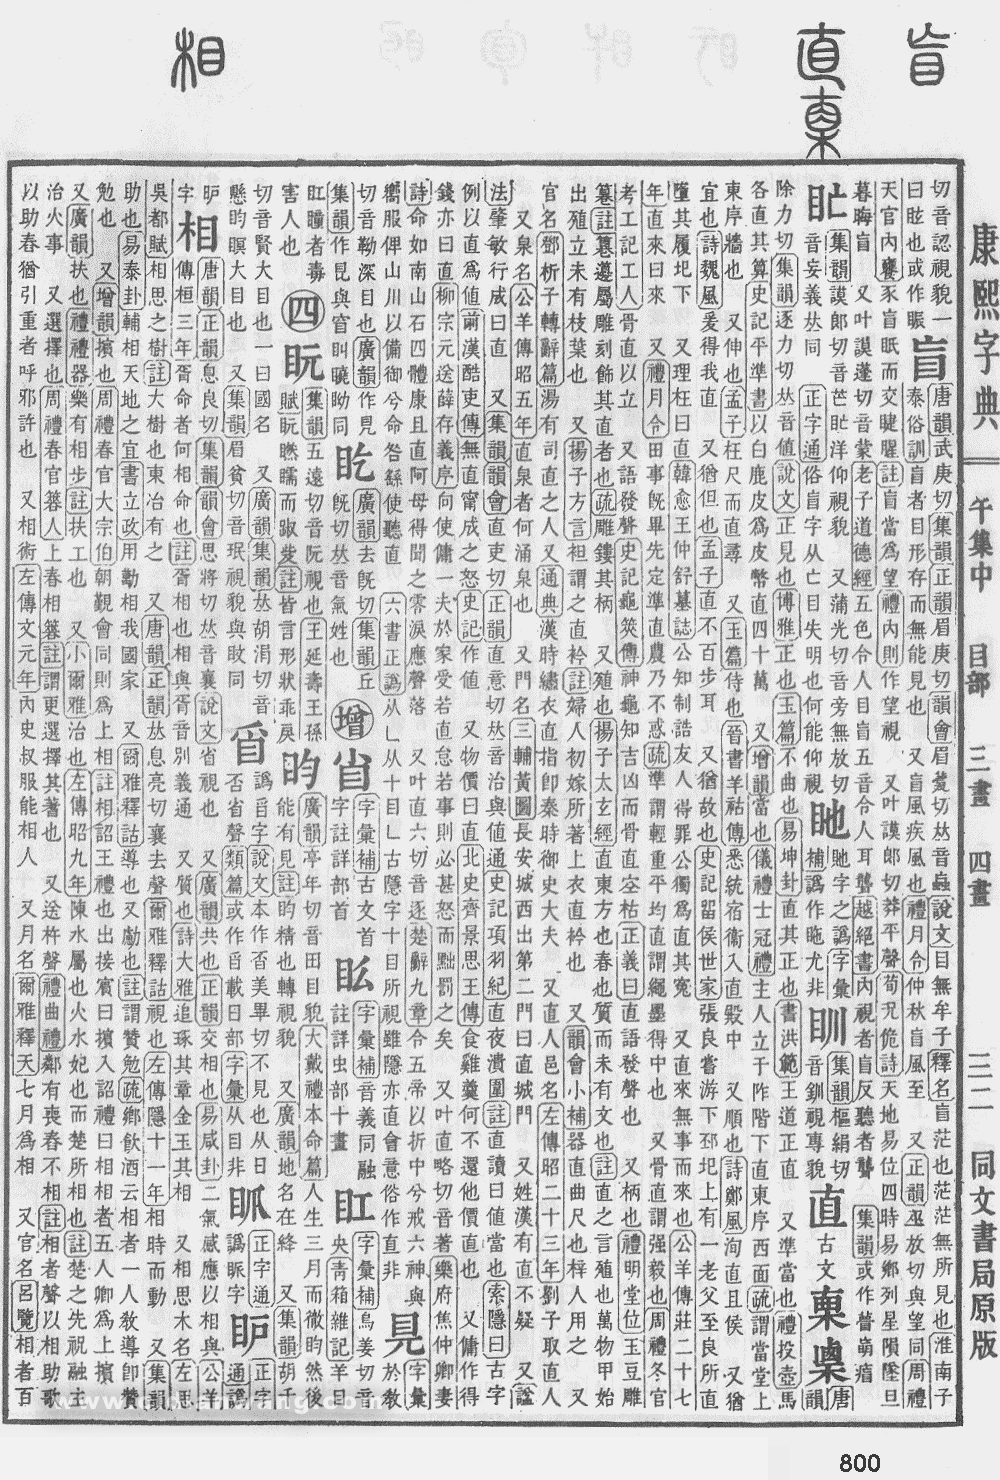 康熙字典 午集中 目部 三畫 四畫 三二 同文書局原版
盲
直
相
切音認視貌一
曰眩也或作眽
盲
唐韻武庚切集韻正韻眉庚切韻會眉甍切𠀤音蝱說文目無牟子釋名盲茫也茫茫無所見也淮南子
泰俗訓盲者目形存而無能見也 又盲風疾風也禮月令仲秋盲風至 又正韻巫放切與望同周禮
天官內饔豕盲眡而交睫腥註盲當爲望禮內則作望視 又叶謨郞切莽平聲荀況佹詩天地易位四時易鄕列星隕墜旦
暮晦盲 又叶謨蓬切音蒙老子道德經五色令人目盲五音令人耳聾越絕書內視者盲反聽者聾 集韻或作瞢
集韻謨郞切音芒 洋仰視貌 又蒲光切音旁無放切
音妄義𠀤同 正字通俗盲字从亡目失明也何能仰視
字之譌字彙
補譌作暆尤非
集韻樞絹切
音釧視專貌
直
古文
唐韻
除力切集韻逐力切𠀤音値說文正見也博雅正也玉篇不曲也易坤卦直其正也書洪範王道正直 又準當也禮投壺馬
各直其算史記平準書以白鹿皮爲皮幣直四十萬 又增韻當也儀禮士冠禮主人立于阼階下直東序西面疏謂當堂上
東序牆也 又伸也孟子枉尺而直尋 又玉篇侍也晉書羊祜傳悉統宿衞入直殿中 又順也詩鄭風洵直且侯 又猶
宜也詩魏風爰得我直 又猶但也孟子直不百步耳 又猶故也史記留侯世家張良嘗游下邳圯上有一老父至良所直
墮其履圯下 又理枉曰直韓愈王仲舒墓誌公知制誥友人得罪公獨爲直其冤 又直來無事而來也公羊傳莊二十七
年直來曰來 又禮月令田事旣畢先定準直農乃不惑疏準謂輕重平均直謂繩墨得中也 又骨直謂强毅也周禮冬官
考工記工人骨直以立 又語發聲史記龜筴傳神龜知吉凶而骨直空枯正義曰直語發聲也 又柄也禮明堂位玉豆雕
篹註篹籩屬雕刻飾其直者也疏雕鏤其柄 又殖也揚子太玄經直東方也春也質而未有文也註直之言殖也萬物甲始
出殖立未有枝葉也 又揚子方言袒謂之直衿註婦人初嫁所著上衣直衿也 又韻會小補器直曲尺也梓人用之 又
官名鄧析子轉辭篇湯有司直之人又通典漢時繡衣直指卽秦時御史大夫 又直人邑名左傳昭二十三年劉子取直人
又泉名公羊傳昭五年直泉者何涌泉也 又門名三輔黃圖長安城西出第二門曰直城門 又姓漢有直不疑 又諡
法肇敏行成曰直 又集韻韻會直吏切正韻直意切𠀤音治與値通史記項羽紀直夜潰圍註直讀曰値當也索隱曰古字
例以直爲値前漢酷吏傳無直甯成之怒史記作値 又物價曰直北史齊景思王傳食雞羹何不還他價直也 又傭作得
錢亦曰直柳宗元送薛存義序向使傭一夫於家受若直怠若事則必甚怒而黜罰之矣 又叶直略切音著樂府焦仲卿妻
詩命如南山石四體康且直阿母得聞之零淚應聲落 又叶直六切音逐楚辭九章令五帝以折中兮戒六神與
嚮服俾山川以備御兮命咎繇使聽直 六書正譌从乚从十目乚古隱字十目所視雖隱亦直會意俗作直非
字彙
於敎
切音勒深目也廣韻作見
集韻作 與窅 曉眑同
廣韻去旣切集韻丘
旣切𠀤音氣姓也
增
字彙補古文首
字註詳部首
字彙補音義同融
註詳虫部十畫
字彙補烏姜切音
央靑箱雜記羊目
盯瞳者毒
害人也
四
盶
集韻五遠切音阮視也王延壽王孫
賦盶 而 註皆言形狀乖戾
盷
廣韻亭年切音田目貌大戴禮本命篇人生三月而徹盷然後
能有見註盷精也轉視貌 又廣韻地名在絳 又集韻胡千
切音賢大目也一曰國名 又廣韻集韻𠀤胡涓切音
懸盷瞑大目也 又集韻眉貧切音珉視貌與敃同
譌盲字說文本作否美畢切不見也从日
否省聲類篇或作 載日部字彙从目非
正字通
譌眽字
正字
通譌
相
唐韻正韻息良切集韻韻會思將切𠀤音襄說文省視也 又廣韻共也正韻交相也易咸卦二氣感應以相與公羊
字傳桓三年胥命者何相命也註胥相也相與胥音別義通 又質也詩大雅追琢其章金玉其相 又相思木名左思
吳都賦相思之樹註大樹也東冶有之 又唐韻正韻𠀤息亮切襄去聲爾雅釋詁視也左傳隱十一年相時而動 又集韻
助也易泰卦輔相天地之宜書立政用勱相我國家 又爾雅釋詁導也又勴也註謂贊勉疏鄕飮酒云相者一人敎導卽贊
勉也 又增韻擯也周禮春官大宗伯朝覲會同則爲上相註相詔王禮也出接賓曰擯入詔禮曰相相者五人卿爲上擯
又廣韻扶也禮禮器樂有相步註扶工也 又小爾雅治也左傳昭九年陳水屬也火水妃也而楚所相也註楚之先祝融主
治火事 又選擇也周禮春官簭人上春相簭註謂更選擇其蓍也 又送杵聲禮曲禮鄰有喪舂不相註相者聲以相助歌
以助舂猶引重者呼邪許也 又相術左傳文元年內史叔服能相人 又月名爾雅釋天七月爲相 又官名呂覽相者百
800